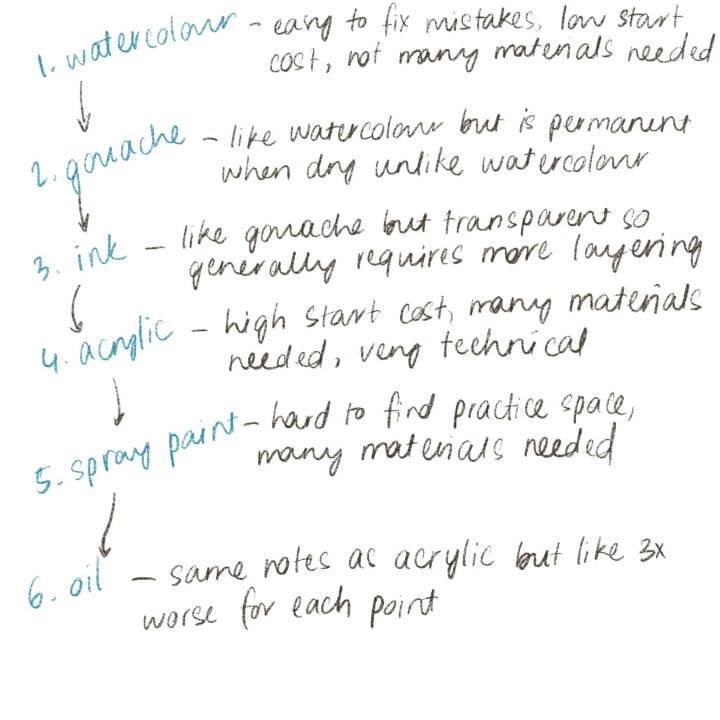 1. watercolour - easy to fix mistakes, low start
cost, not many materials needed
2. gouache - like watercolour but is permanent
when dry unlike watercolour
3. ink - like gouache but transparent so
generally requires more layering
4. acrylic - high start cost, many materials
needed, very technical
5. spray paint - hard to find practice space,
many materials needed
6. oil - same notes as acrylic but like 3x
worse for each point